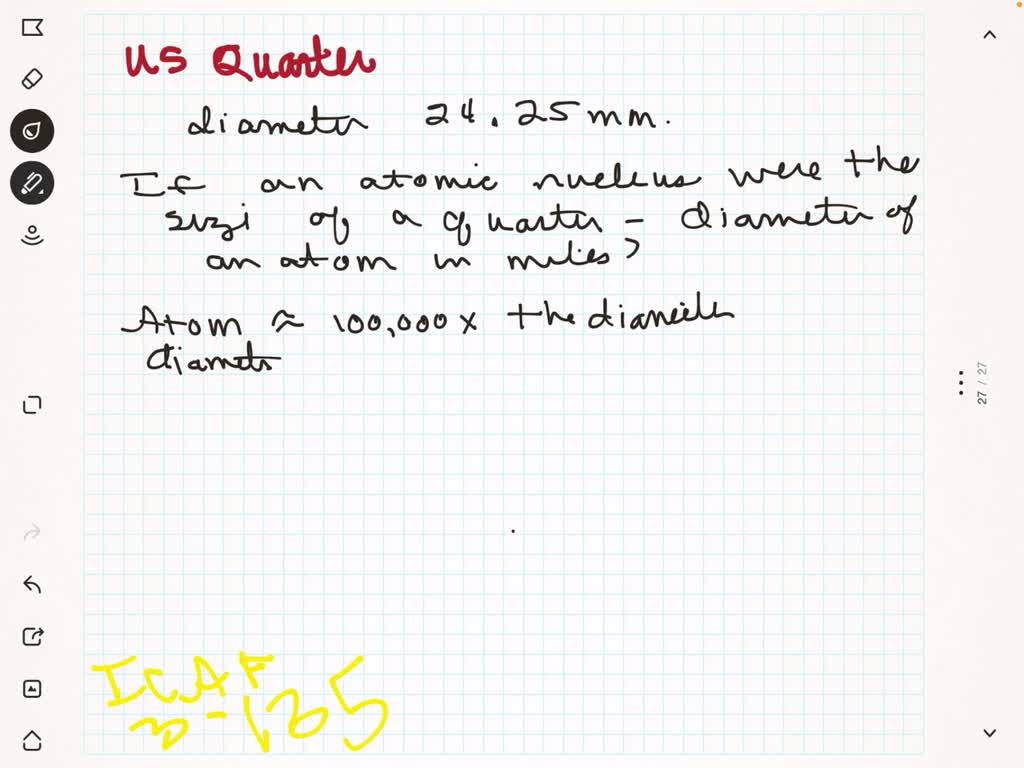 US Quarter
diameter 24.25 mm.
If an atomic nucleus were the
size of a quarter - diameter of
an atom in miles?
Atom ≈ 100,000 x the diameter
diameter
ICAF
-135
27 / 27